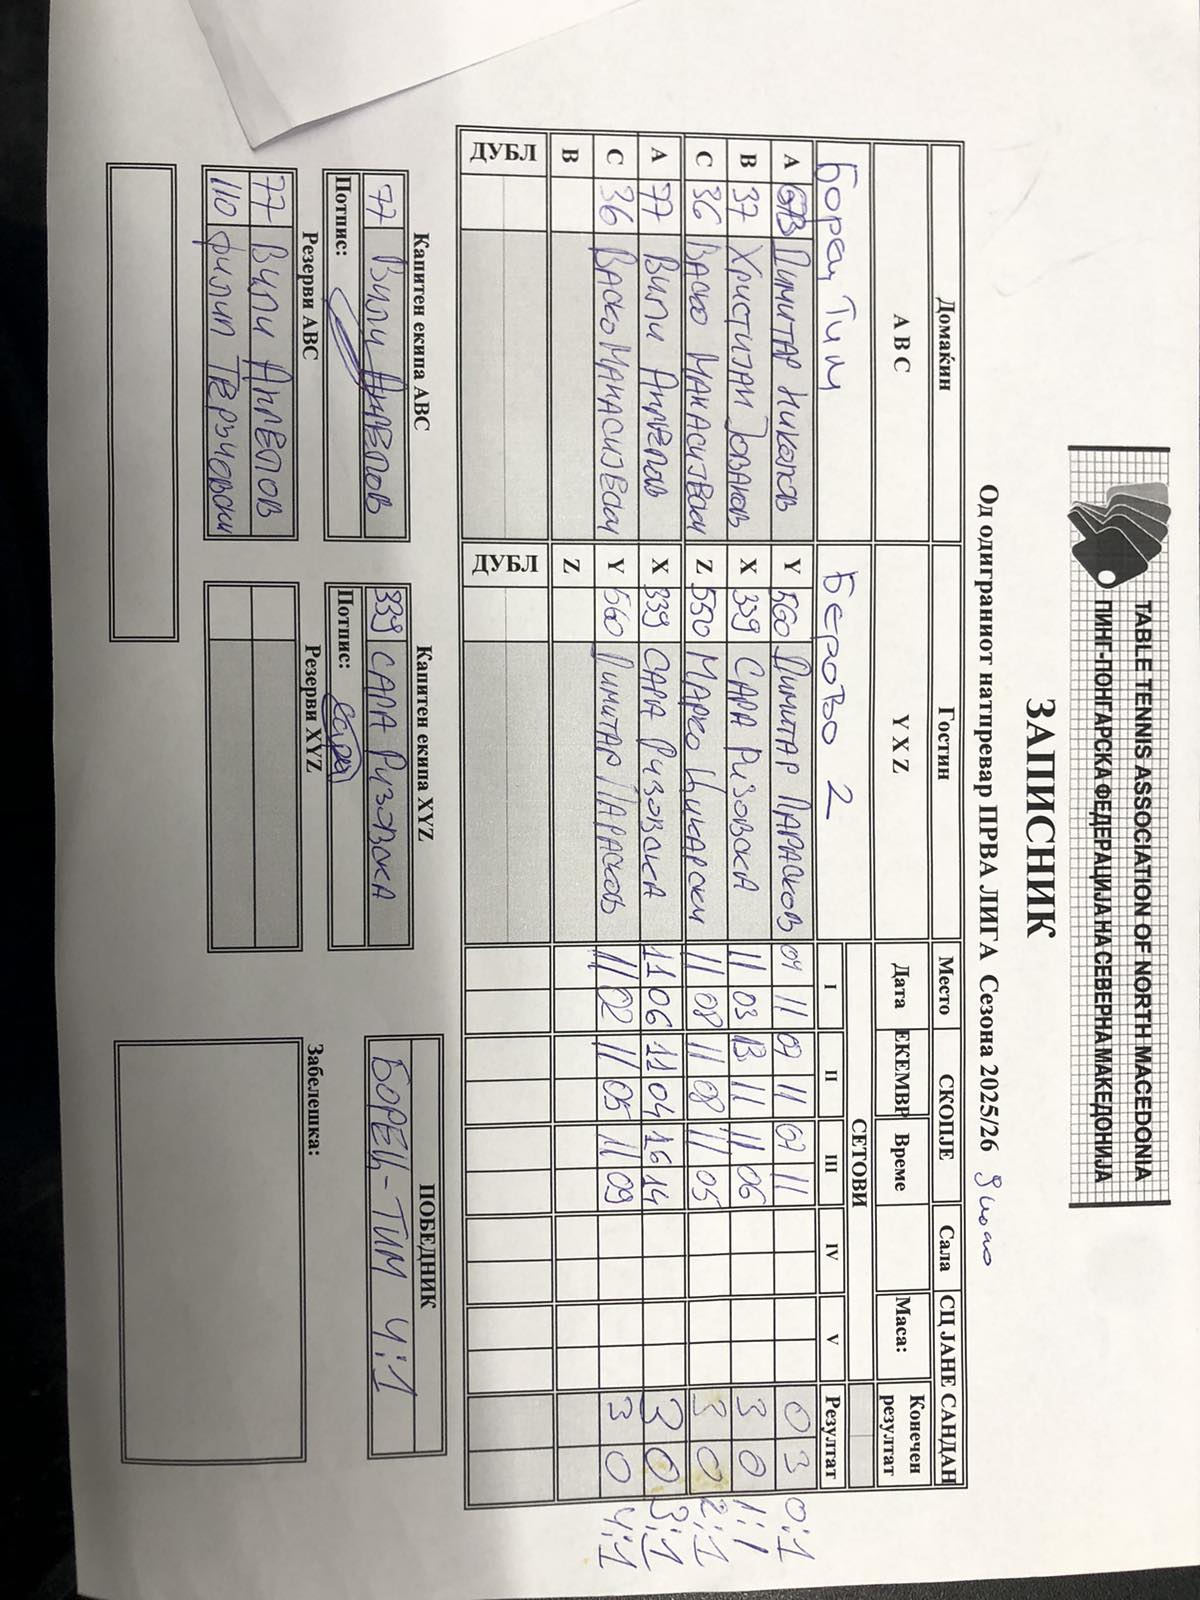 TABLE TENNIS ASSOCIATION OF NORTH MACEDONIA
ПИНГ-ПОНГАРСКА ФЕДЕРАЦИЈА НА СЕВЕРНА МАКЕДОНИЈА
ЗАПИСНИК
Од одиграниот натпревар ПРВА ЛИГА Сезона 2025/26
Домаќин Гостин Место СКОПЈЕ Сала СЦ ЈАНЕ САНДАН
A B C Y X Z Дата ЕКЕМВР Време Маса: Конечен резултат
Борец Тим Берово 2 СЕТОВИ
I II III IV V Резултат
A 673 Димитар Николов Y 560 Димитар Парасков 04 11 07 11 07 11 0 3 0:1
B 37 Христијан Јованов X 339 Сара Ризовска 11 03 13 11 11 06 3 0 1:1
C 36 Васко Манасијевски Z 550 Марко Цикарски 11 08 11 08 11 05 3 0 2:1
A 77 Вили Ангелов X 339 Сара Ризовска 11 06 11 04 16 14 3 0 3:1
C 36 Васко Манасијевски Y 560 Димитар Парасков 11 02 11 05 11 09 3 0 4:1
B Z
ДУБЛ ДУБЛ
Капитен екипа ABC Капитен екипа XYZ ПОБЕДНИК
77 Вили Ангелов 339 Сара Ризовска БОРЕЦ-ТИМ 4:1
Потпис: Потпис: Сара
Резерви ABC Резерви XYZ Забелешка:
77 Вили Ангелов
110 Филип Терзиовски